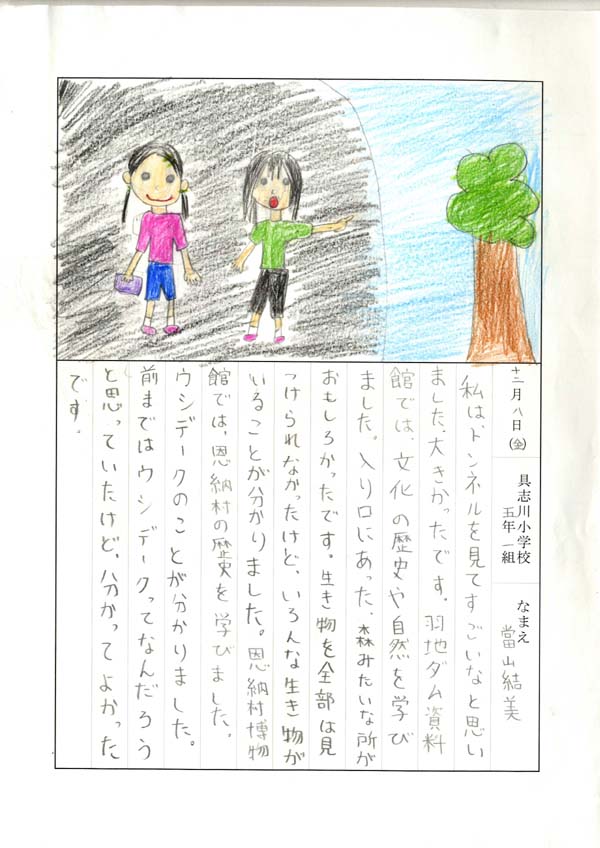 十二月八日(金)
具志川小学校
五年一組
なまえ
當山結美
私は、トンネルを見てすごいなと思い
ました、大きかったです。羽地ダム資料
館では、文化の歴史や自然を学び
ました。入り口にあった、森みたいな所が
おもしろかったです。生き物を全部は見
つけられなかったけど、いろんな生き物が
いることが分かりました。恩納村博物
館では、恩納村の歴史を学びました。
ウシデークのことが分かりました。
前まではウシデークってなんだろう
と思っていたけど、分かってよかった
です。